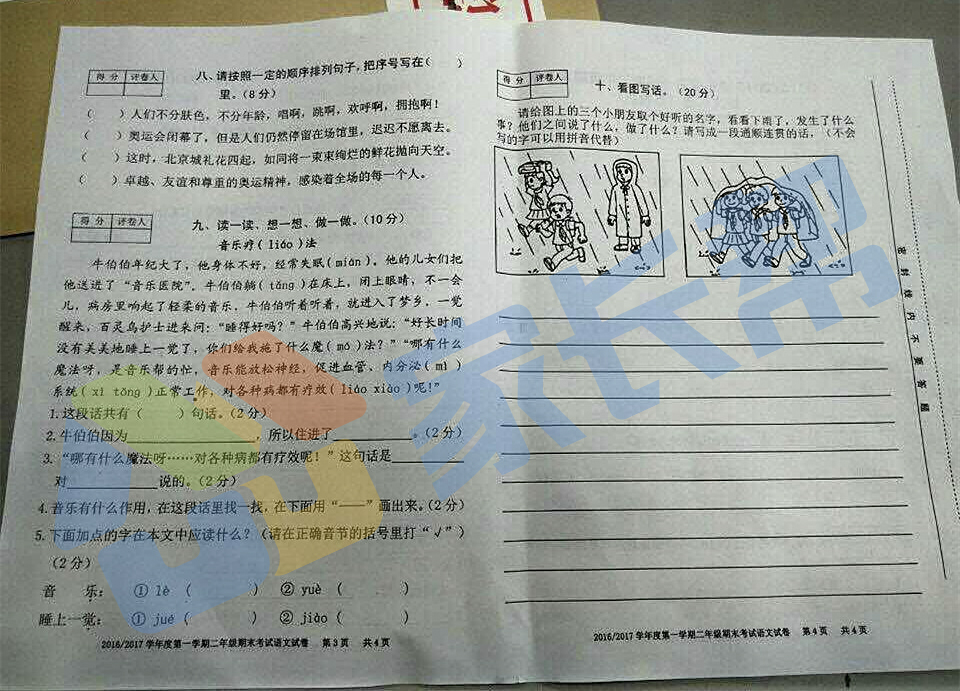 得分 评卷人
八、请按照一定的顺序排列句子,把序号写在( )
里。(8分)
( )人们不分肤色,不分年龄,唱啊,跳啊,欢呼啊,拥抱啊!
( )奥运会闭幕了,但是人们仍然停留在场馆里,迟迟不愿离去。
( )这时,北京城礼花四起,如同将一束束绚烂的鲜花抛向天空。
( )卓越、友谊和尊重的奥运精神,感染着全场的每一个人。
得分 评卷人
九、读一读、想一想、做一做。(10分)
音乐疗(liáo)法
牛伯伯年纪大了,他身体不好,经常失眠(mián)。他的儿女们把
他送进了“音乐医院”。牛伯伯躺(tǎng)在床上,闭上眼睛,不一会
儿,病房里响起了轻柔的音乐,牛伯伯听着听着,就进入了梦乡,一觉
醒来,百灵鸟护士进来问:“睡得好吗?”牛伯伯高兴地说:“好长时间
没有美美地睡上一觉了,你们给我施了什么魔(mó)法?”“哪有什么
魔法呀,是音乐帮的忙,音乐能放松神经,促进血管、内分泌(mì)
系统(xì tǒng)正常工作,对各种病都有疗效(liáo xiào)呢!”
1.这段话共有( )句话。(2分)
2.牛伯伯因为____,所以住进了____。(2分)
3.“哪有什么魔法呀……对各种病都有疗效呢!”这句话是____
对____说的。(2分)
4.音乐有什么作用,在这段话里找一找,在下面用“——”画出来。(2分)
5.下面加点的字在本文中应读什么?(请在正确音节的括号里打“√”)
(2分)
音 乐: ①lè ( ) ②yuè ( )
睡上一觉: ①jué ( ) ②jiào ( )
2016/2017学年度第一学期二年级期末考试语文试卷 第3页 共4页
得分 评卷人
十、看图写话。(20分)
请给图上的三个小朋友取个好听的名字,看看下雨了,发生了什么
事?他们之间说了什么,做了什么?请写成一段通顺连贯的话,(不会
写的字可以用拼音代替)
密封线内不要答题
2016/2017学年度第一学期二年级期末考试语文试卷 第4页 共4页
家长帮